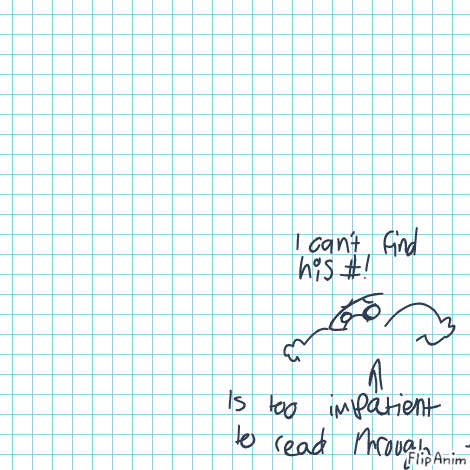 I can't find
his #!
Is too impatient
to read through
FlipAnim